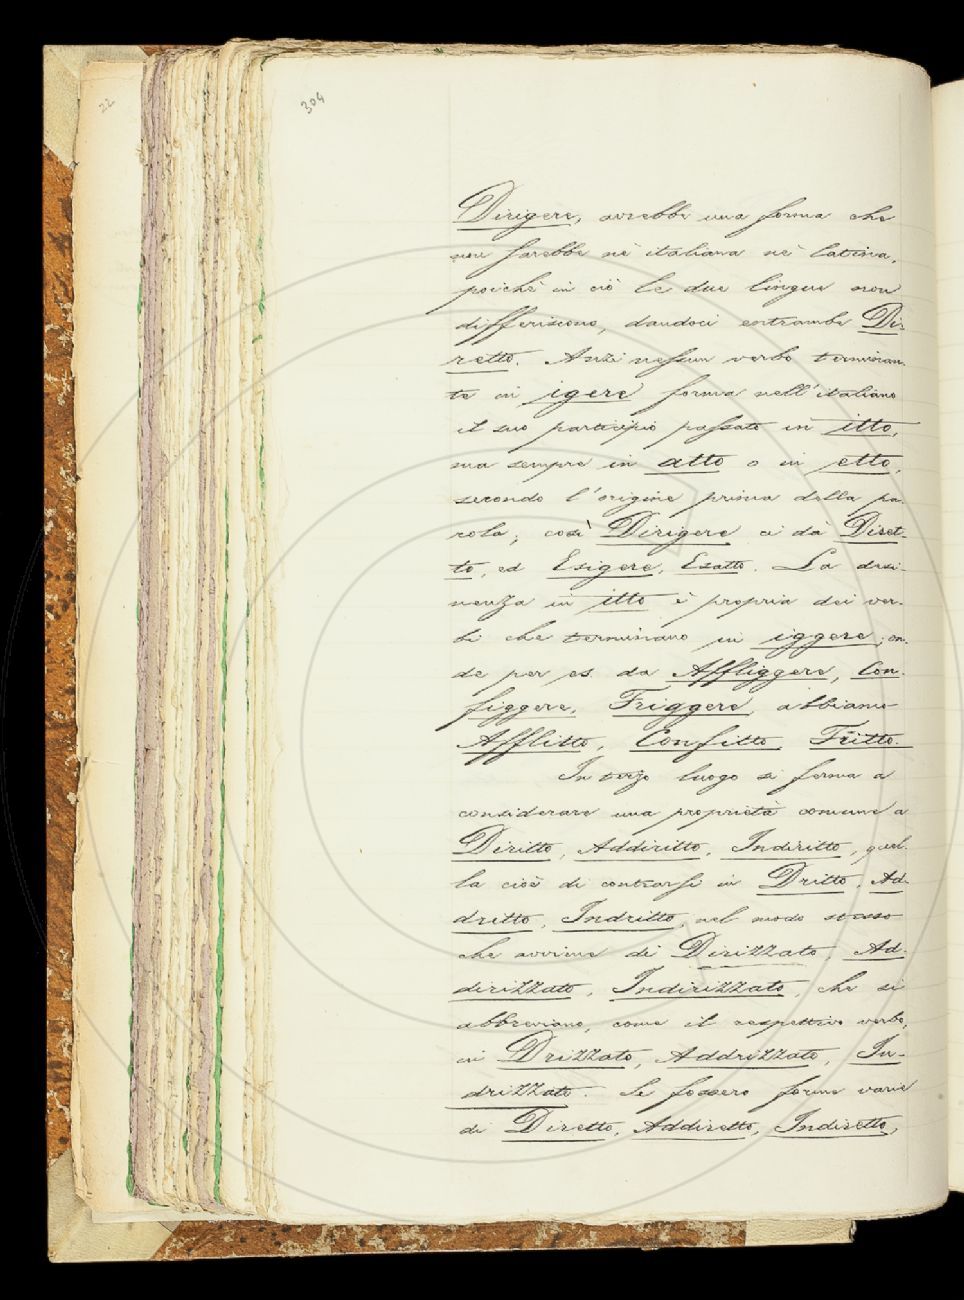 22
304
Dirigere, avrebbe una forma che
non sarebbe nè italiana nè latina,
poichè in ciò le due lingue non
differiscono, dandoci entrambe Di-
retto. Anzi nessun verbo terminan-
te in igere forma nell'italiano
il suo participio passato in itto,
ma sempre in atto o in etto,
secondo l'origine prima della pa-
rola; così Dirigere ci dà Diret-
to, ed Esigere, Esatto. La desi-
nenza in itto è propria dei ver-
bi che terminano in iggere; on-
de per es. da Affliggere, Con-
figgere, Friggere, abbiamo
Afflitto, Confitto, Fritto.
In terzo luogo si ferma a
considerare una proprietà comune a
Diritto, Addiritto, Indiritto, quel-
la cioè di contrarsi in Dritto, Ad-
dritto, Indritto, nel modo stesso
che avviene di Dirizzato, Ad-
dirizzato, Indirizzato, che si
abbreviano, come il respettivo verbo,
in Drizzato, Addrizzato, In-
drizzato. Se fossero forme varie
di Diretto, Addiretto, Indiretto,